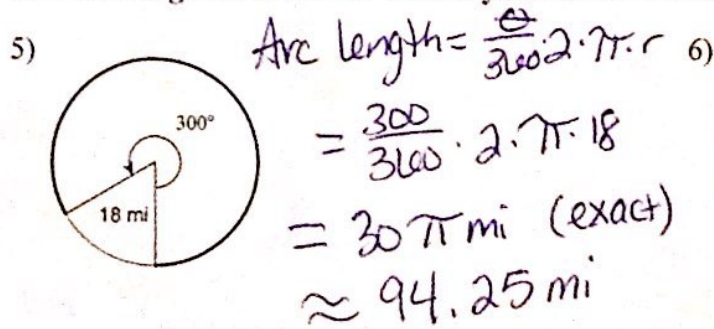 5)
300°
18 mi
Arc length = θ/360 · 2 · π · r
= 300/360 · 2 · π · 18
= 30 π mi (exact)
≈ 94.25 mi
6)